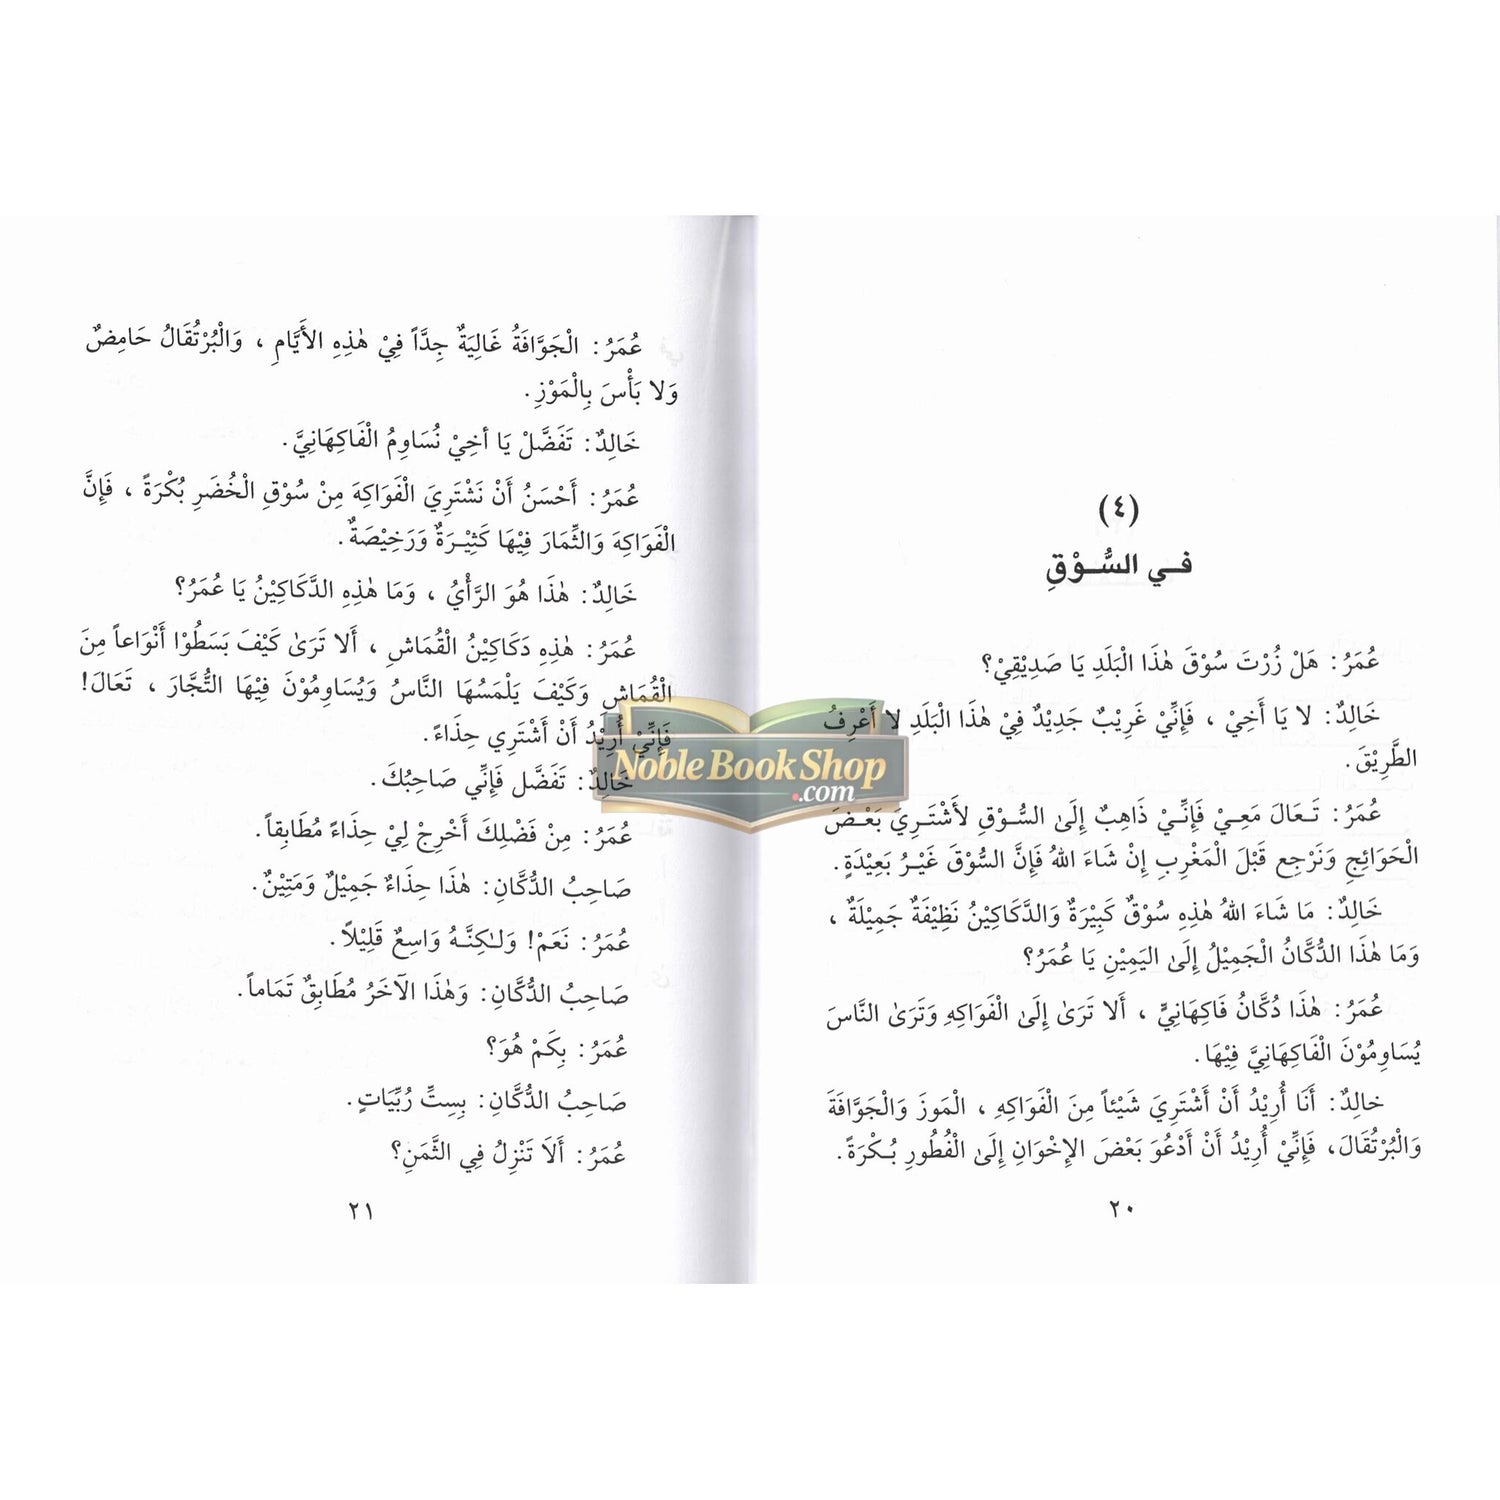 (٤)
فــي السُّــوْقِ
عُمَرُ: هَلْ زُرْتَ سُوْقَ هٰذَا الْبَلَدِ يَا صَدِيْقِيْ؟
خَالِدٌ: لا يَا أَخِيْ ، فَإِنِّيْ غَرِيْبٌ جَدِيْدٌ فِيْ هٰذَا الْبَلَدِ لا أَعْرِفُ
الطَّرِيْقَ.
عُمَرُ: تَـعَالَ مَعِـيْ فَإِنِّـيْ ذَاهِبٌ إِلَىٰ السُّـوْقِ لأَشْتَـرِيَ بَعْـضَ
الْحَوَائِجِ وَنَرْجِع قَبْلَ الْمَغْرِبِ إِنْ شَاءَ اللهُ فَإِنَّ السُّوْقَ غَيْـرُ بَعِيْدَةٍ.
خَالِدٌ: مَا شَاءَ اللهُ هٰذِهِ سُوْقٌ كَبِيْرَةٌ وَالدَّكَاكِيْنُ نَظِيْفَةٌ جَمِيْلَةٌ ،
وَمَا هٰذَا الدُّكَّانُ الْجَمِيْلُ إِلَىٰ اليَمِيْنِ يَا عُمَرُ؟
عُمَرُ: هٰذَا دُكَّانُ فَاكِهَانِيٍّ ، أَلا تَرَىٰ إِلَىٰ الْفَوَاكِهِ وَتَرَىٰ النَّاسَ
يُسَاوِمُوْنَ الْفَاكِهَانِيَّ فِيْهَا.
خالِدٌ: أَنَا أُرِيْدُ أَنْ أَشْتَرِيَ شَيْئاً مِنَ الْفَوَاكِهِ ، الْمَوزَ وَالْجَوَّافَةَ
وَالْبُرْتُقَالَ، فَإِنِّيْ أُرِيْدُ أَنْ أَدْعُوَ بَعْضَ الإِخْوَانِ إِلَىٰ الْفُطُورِ بُـكْرَةً.
٢٠
عُمَرُ: الْجَوَّافَةُ غَالِيَةٌ جِدَّاً فِيْ هٰذِهِ الأَيَّامِ ، وَالْبُرْتُقَالُ حَامِضٌ
وَلا بَأْسَ بِالْمَوْزِ.
خَالِدٌ: تَفَضَّلْ يَا أخِيْ نُسَاوِمُ الْفَاكِهَانِيَّ.
عُمَرُ: أَحْسَنُ أَنْ نَشْتَرِيَ الْفَوَاكِهَ مِنْ سُوْقِ الْخُضَرِ بُكْرَةً ، فَإِنَّ
الْفَوَاكِهَ وَالثِّمَارَ فِيْهَا كَثِيْـرَةٌ وَرَخِيْصَةٌ.
خَالِدٌ: هٰذَا هُوَ الرَّأْيُ ، وَمَا هٰذِهِ الدَّكَاكِيْنُ يَا عُمَرُ؟
عُمَرُ: هٰذِهِ دَكَاكِيْنُ الْقُمَاشِ ، أَلا تَرَىٰ كَيْفَ بَسَطُوْا أَنْوَاعاً مِنَ
الْقُمَاشِ وَكَيْفَ يَلْمَسُهَا النَّاسُ وَيُسَاوِمُوْنَ فِيْهَا التُّجَّارَ ، تَعَالَ!
فَإِنِّيْ أُرِيْدُ أَنْ أَشْتَرِي حِذَاءً.
خَالِدٌ: تَفَضَّل فَإِنِّي صَاحِبُكَ.
عُمَرُ: مِنْ فَضْلِكَ أَخْرِجْ لِيْ حِذَاءً مُطَابِقاً.
صَاحِبُ الدُّكَّانِ: هٰذَا حِذَاءٌ جَمِيْلٌ وَمَتِيْنٌ.
عُمَرُ: نَعَمْ! وَلـٰكِنَّـهُ وَاسِعٌ قَلِيْلاً.
صَاحِبُ الدُّكَّانِ: وَهٰذَا الآخَرُ مُطَابِقٌ تَمَاماً.
عُمَرُ: بِكَمْ هُوَ؟
صَاحِبُ الدُّكَّانِ: بِسِتِّ رُبِّيَاتٍ.
عُمَرُ: أَلَا تَنْزِلُ فِي الثَّمَنِ؟
٢١
Noble Book Shop
.com